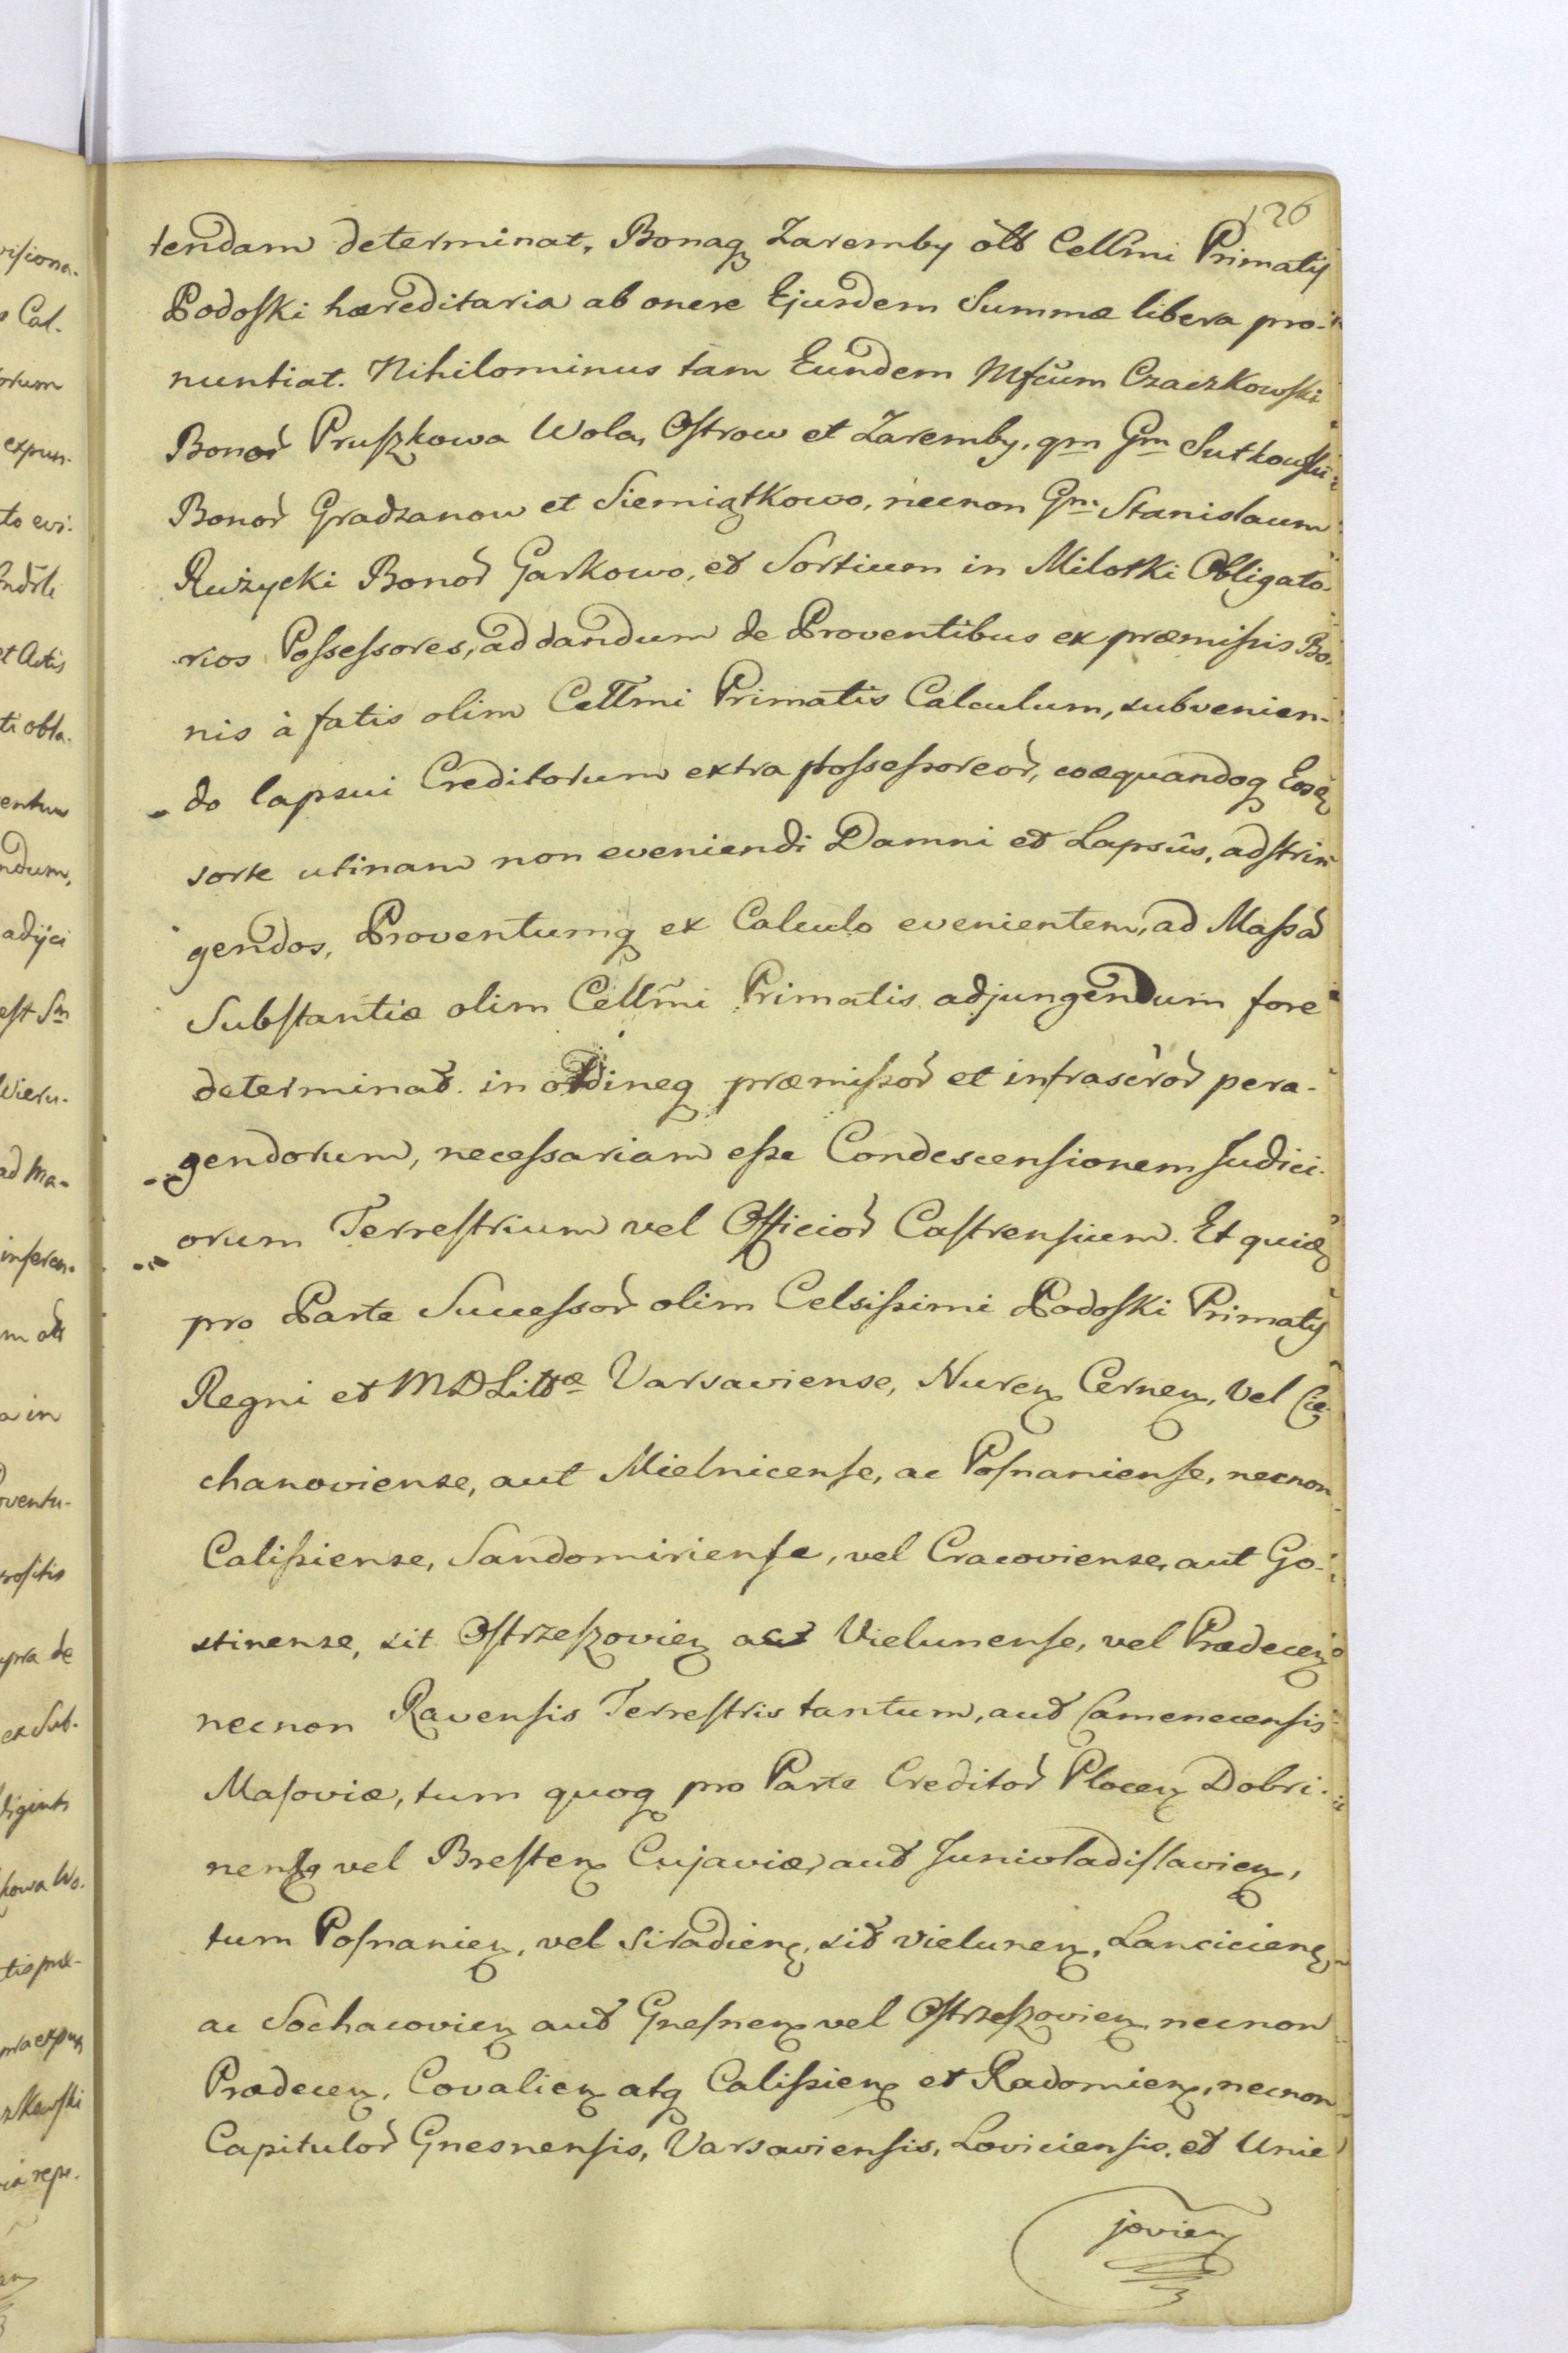 126
tendam determinat, Bonaq₃ Zaremby olb Cellmi Primatis
Podoski hæreditaria ab onere Ejusdem Summæ libera pro-
nuntiat. Nihilominus tam Eundem Mfcum Czaczkowski
Bonor Pruszkowa Wola, Ostrow et Zaremby, qm Gm Sutkowski
Bonor Gradzanow et Siemiątkowo, necnon Gm Stanislaum
Rużycki Bonor Garkowo, et Sortium in Milotki Obligato-
rios Possessores, ad dandum de Proventibus ex præmissis Bo-
nis à fatis olim Cellmi Primatis Calculum, subvenien-
do lapsui Creditorum extra possessoreor, coæquandoq₃ Eosq₃
sorte utinam non eveniendi Damni et Lapsûs, adstrin
gendos, Proventumq₃ ex Calculo evenientem, ad Massa
Substantiæ olim Cellmi Primatis adjungendum fore
determinat. in ordineq₃ præmissor et infrascror pera-
gendorum, necessariam esse Condescensionem Judici-
orum Terrestrium vel Officior Castrensium. Et quia
pro Parte Successor olim Celsissimi Podoski Primatis
Regni et MDLittæ Varsaviense, Nuren Cernen, vel Cie-
chanoviense, aut Mielnicense, ac Posnaniense, necnon
Calissiense, Sandomiriense, vel Cracoviense, aut Go-
stinense, sit Ostrzeszovien aut Vielunense, vel Prædecen
necnon Ravensis Terrestris tantum, aut Camenecensis
Masoviæ, tum quoq₃ pro Parte Creditor Plocen Dobri-
nense vel Bresten Cujaviæ, aut Junivladislavien,
tum Posnanien, vel siradien, sit vielunen, Lancicien,
ac Sochacovien aut Gnesnen vel Ostrzeszovien necnon
Prædecen, Covalien atq₃ Calissien et Radomien, necnon
Capitulor Gnesnensis, Varsaviensis, Loviciensis, et Unie
jovien